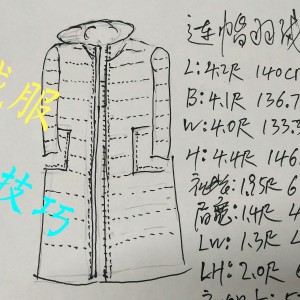 连帽羽绒
L:4.2尺 140cm
B:4.1尺 136.7
W:4.0尺 133.3
H:4.4尺 146
1.95尺 6
肩宽:1.4尺 4
LW:1.3尺
LH:2.0尺 6
服
技巧